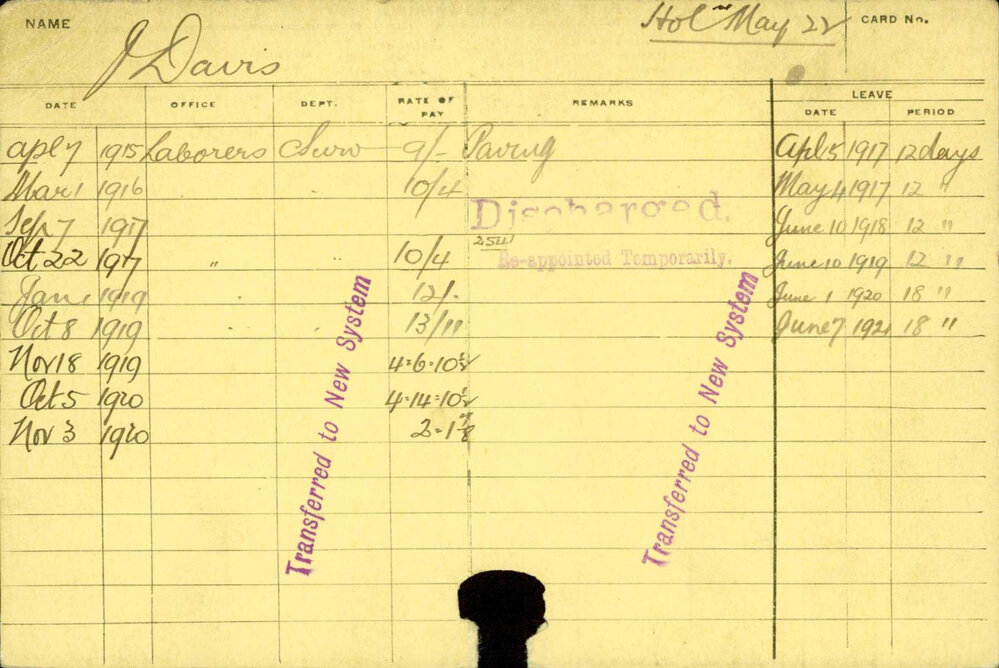 NAME J Davis Hol May 22 CARD No.
LEAVE
DATE OFFICE DEPT. RATE OF PAY REMARKS DATE PERIOD
Apl 7 1915 Laborers Surv 9/- Paving Apl 5 1917 12 days
Mar 1 1916 10/4 May 4 1917 12 "
Sep 7 1917 Discharged. June 10 1918 12 "
2541
Oct 22 1917 " 10/4 Re-appointed Temporarily. June 10 1919 12 "
Jan 1 1919 " 12/- June 1 1920 18 "
Oct 8 1919 13/11 June 7 1921 18 "
Nov 18 1919 4=6=10½
Oct 5 1920 4=14=10½
Nov 3 1920
Transferred to New System
Transferred to New System